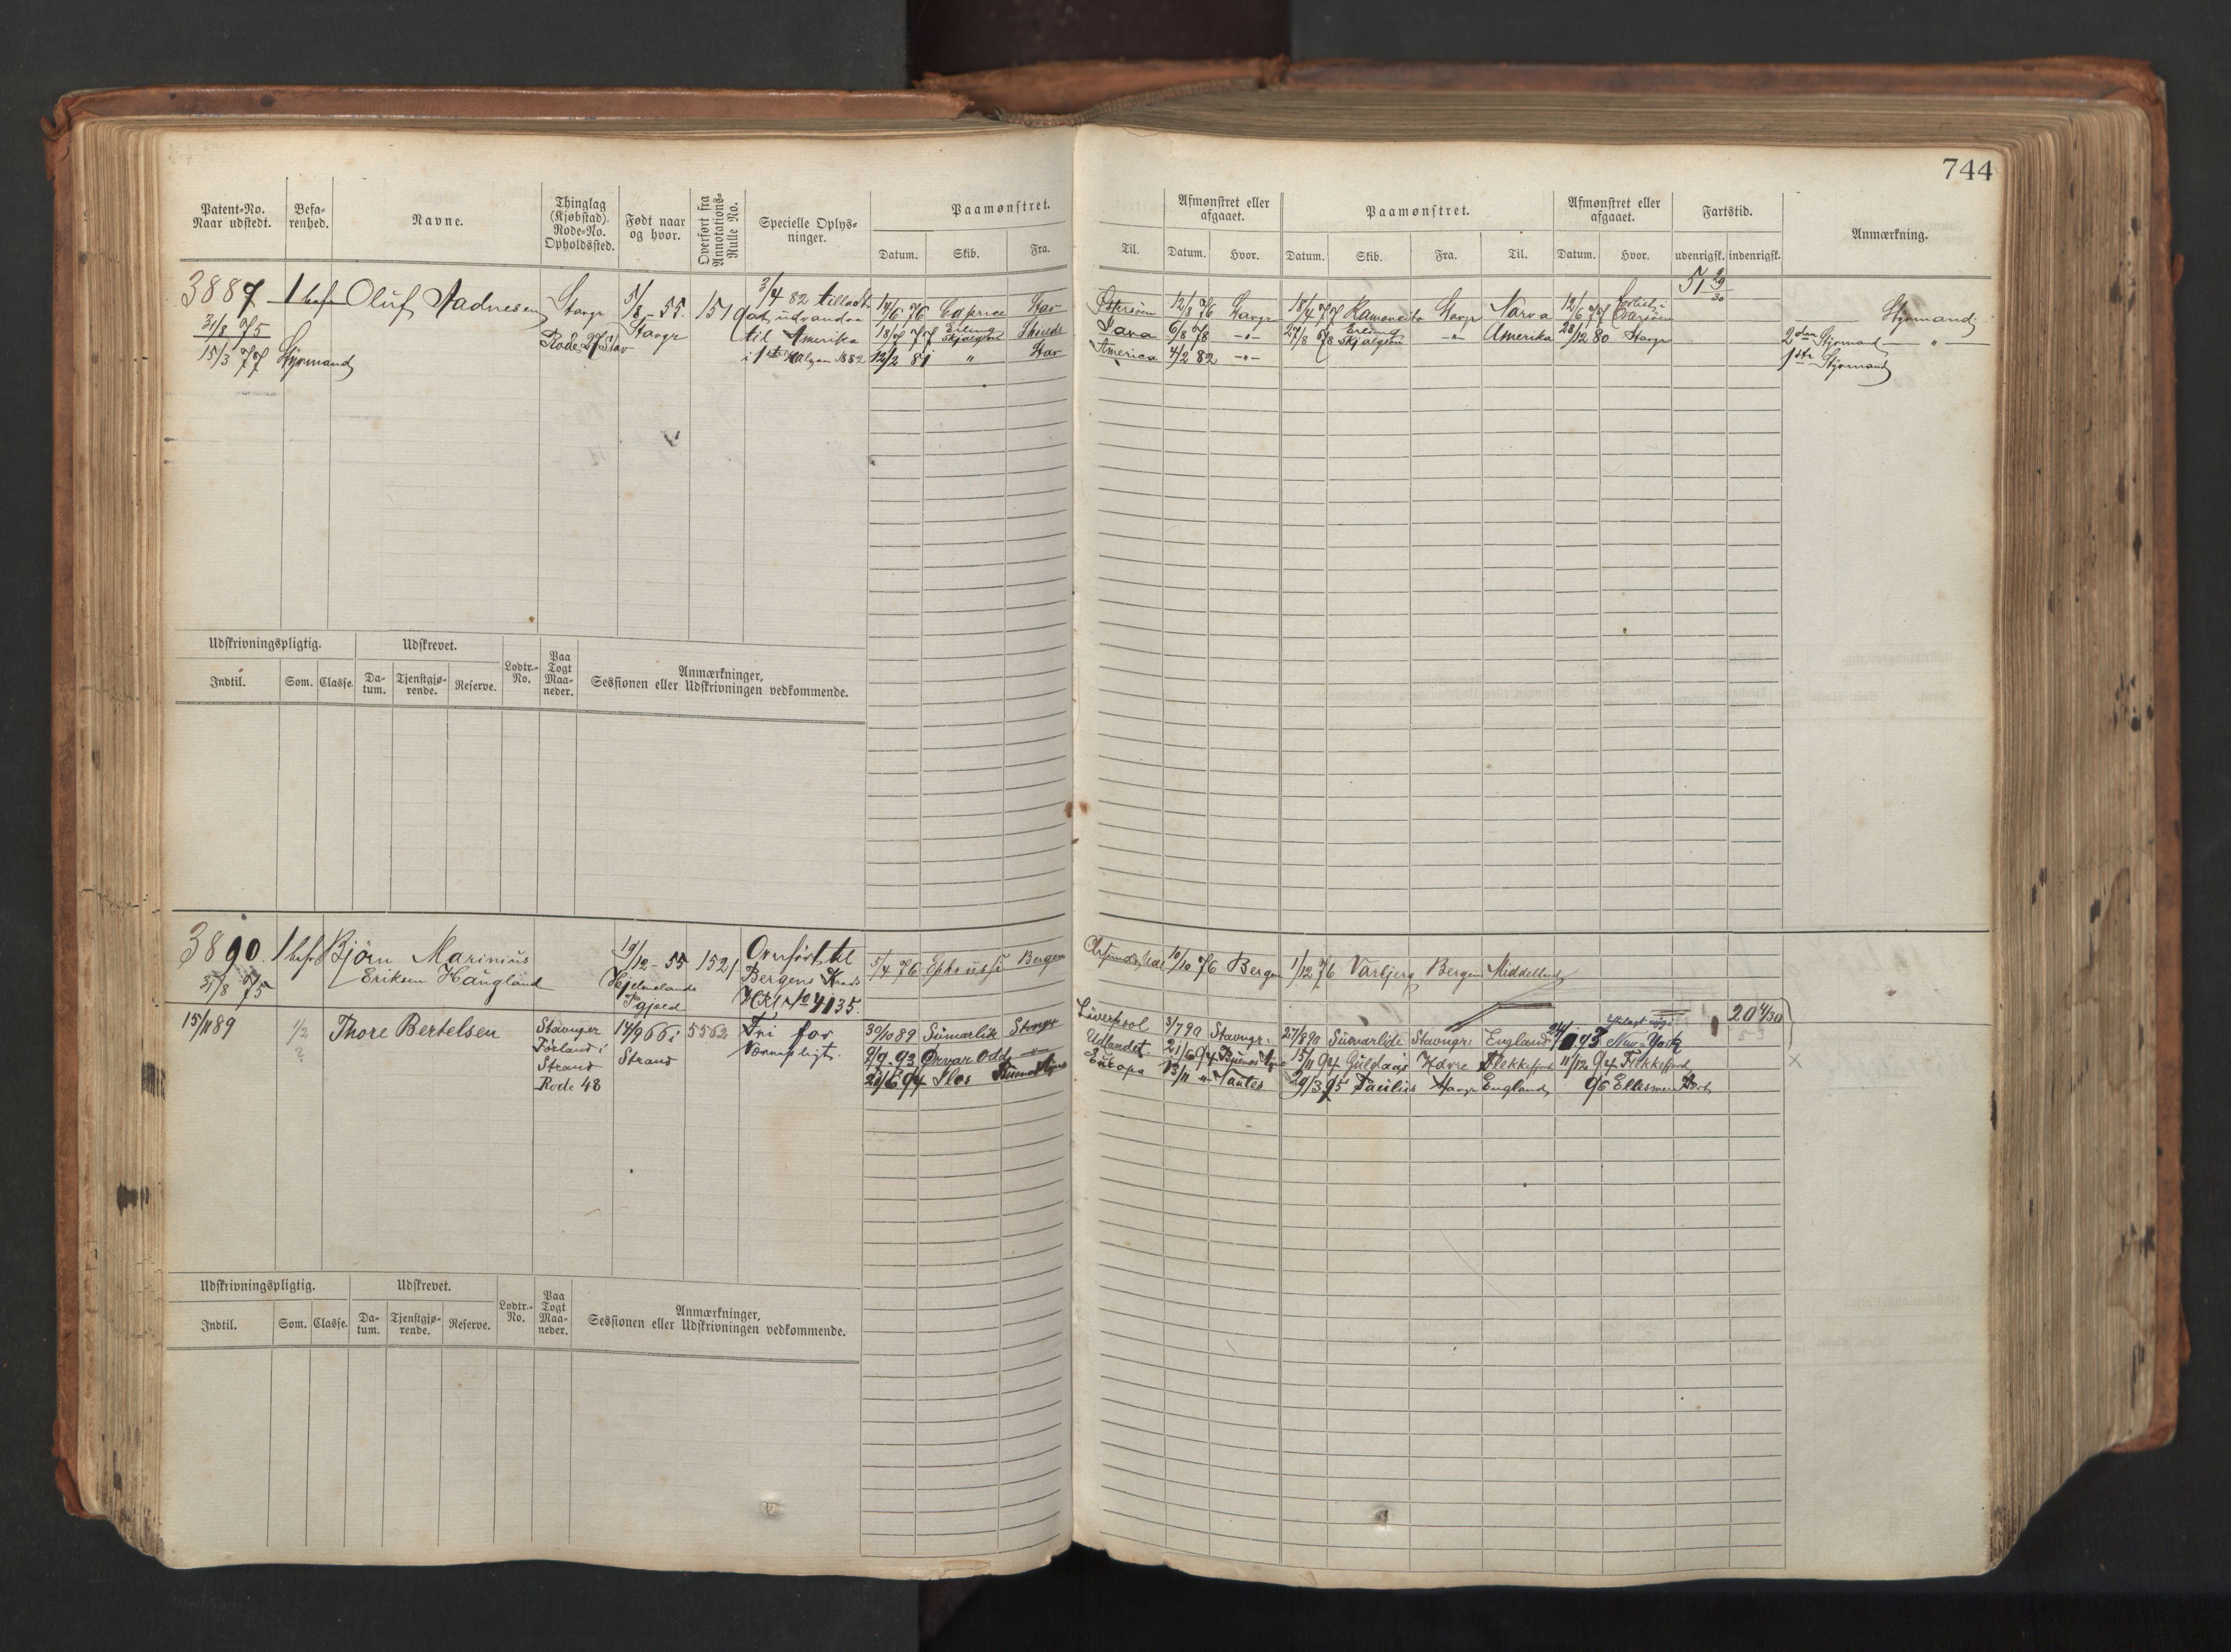 744
Patent-No. Naar udstedt.
Befa-renhed.
Navne.
Thinglag (Kjøbstad). Rode-No. Opholdssted.
Født naar og hvor.
Overført fra Annotations-Rulle No.
Specielle Oplys-ninger.
Paamønstret.
Datum. Skib. Fra.
Til.
Afmønstret eller afgaaet.
Datum. Hvor.
Paamønstret.
Datum. Skib. Fra. Til.
Afmønstret eller afgaaet.
Datum. Hvor.
Fartstid.
udenrigsk. indenrigsk.
Anmærkning.
3887 1 bef Oluf Aadnesen
31/8 75
15/3 77 Styrmand
Stavgr
Rode 27 Stav
5/8-55. Stavgr
1519
3/4 82 tilladt
at udvandre
til Amerika
14/6 76 Caprice Stav
18/7 77 Erling Skjalgsen
12/2 81 " Stav
Østersøen 12/8 76 Stavgr 18/4 77 Ramoncita Stavgr Narva 12/6 77 Forlist i
Java 6/8 78 -"- 27/8 78 Erling Skjalgsen -"- Amerika 28/12 80 Stavgr
America 4/2 82 -"-
51 29/30
Styrmand
2den Styrmand -"-
1ste Styrmand
Udskrivningspligtig.
Udskrevet.
Lodtr.-No.
Paa Togt Maa-neder.
Anmærkninger,
Sessionen eller Udskrivningen vedkommende.
Indtil. Som. Classe. Da-tum. Tjenstgjø-rende. Reserve.
3890. 1 bef Bjørn Marinius
31/8 75 Eriksen Haugland
19/12-55
Hjelmelands
Pgjeld
1521
Overført til
Bergens Kreds
HRl No 4135.
5/4 76 Ephrussi Bergen
10/10 76 Bergen 1/12 76 Varbjerg Bergen Middelhavet
15/11 89 1/2 Thore Bertelsen
?
Stavanger
Førland i
Strand
Rode 48
14/9 66 i
Strand
5562
Fri for
Værnepligt.
30/10 89 Sumarlide Stavgr
9/9 93 Ørvar Odd
21/6 94 Ilos Buenos Ayres
Liverpool 3/7 90 Stavngr. 27/8 90 Sumarlide Stavngr. England New-York
Udlandet 21/6 94 Buenos Ayres 15/11 94 Guldaas Havre Flekkefjord 11/12 94 Flekkefjord
Europa 13/11 Nantes 29/3 95 Stavgr England 9/6 Ellesmere Port
20 4/30
Udskrivningspligtig.
Udskrevet.
Lodtr.-No.
Paa Togt Maa-neder.
Anmærkninger,
Sessionen eller Udskrivningen vedkommende.
Indtil. Som. Classe. Da-tum. Tjenstgjø-rende. Reserve.